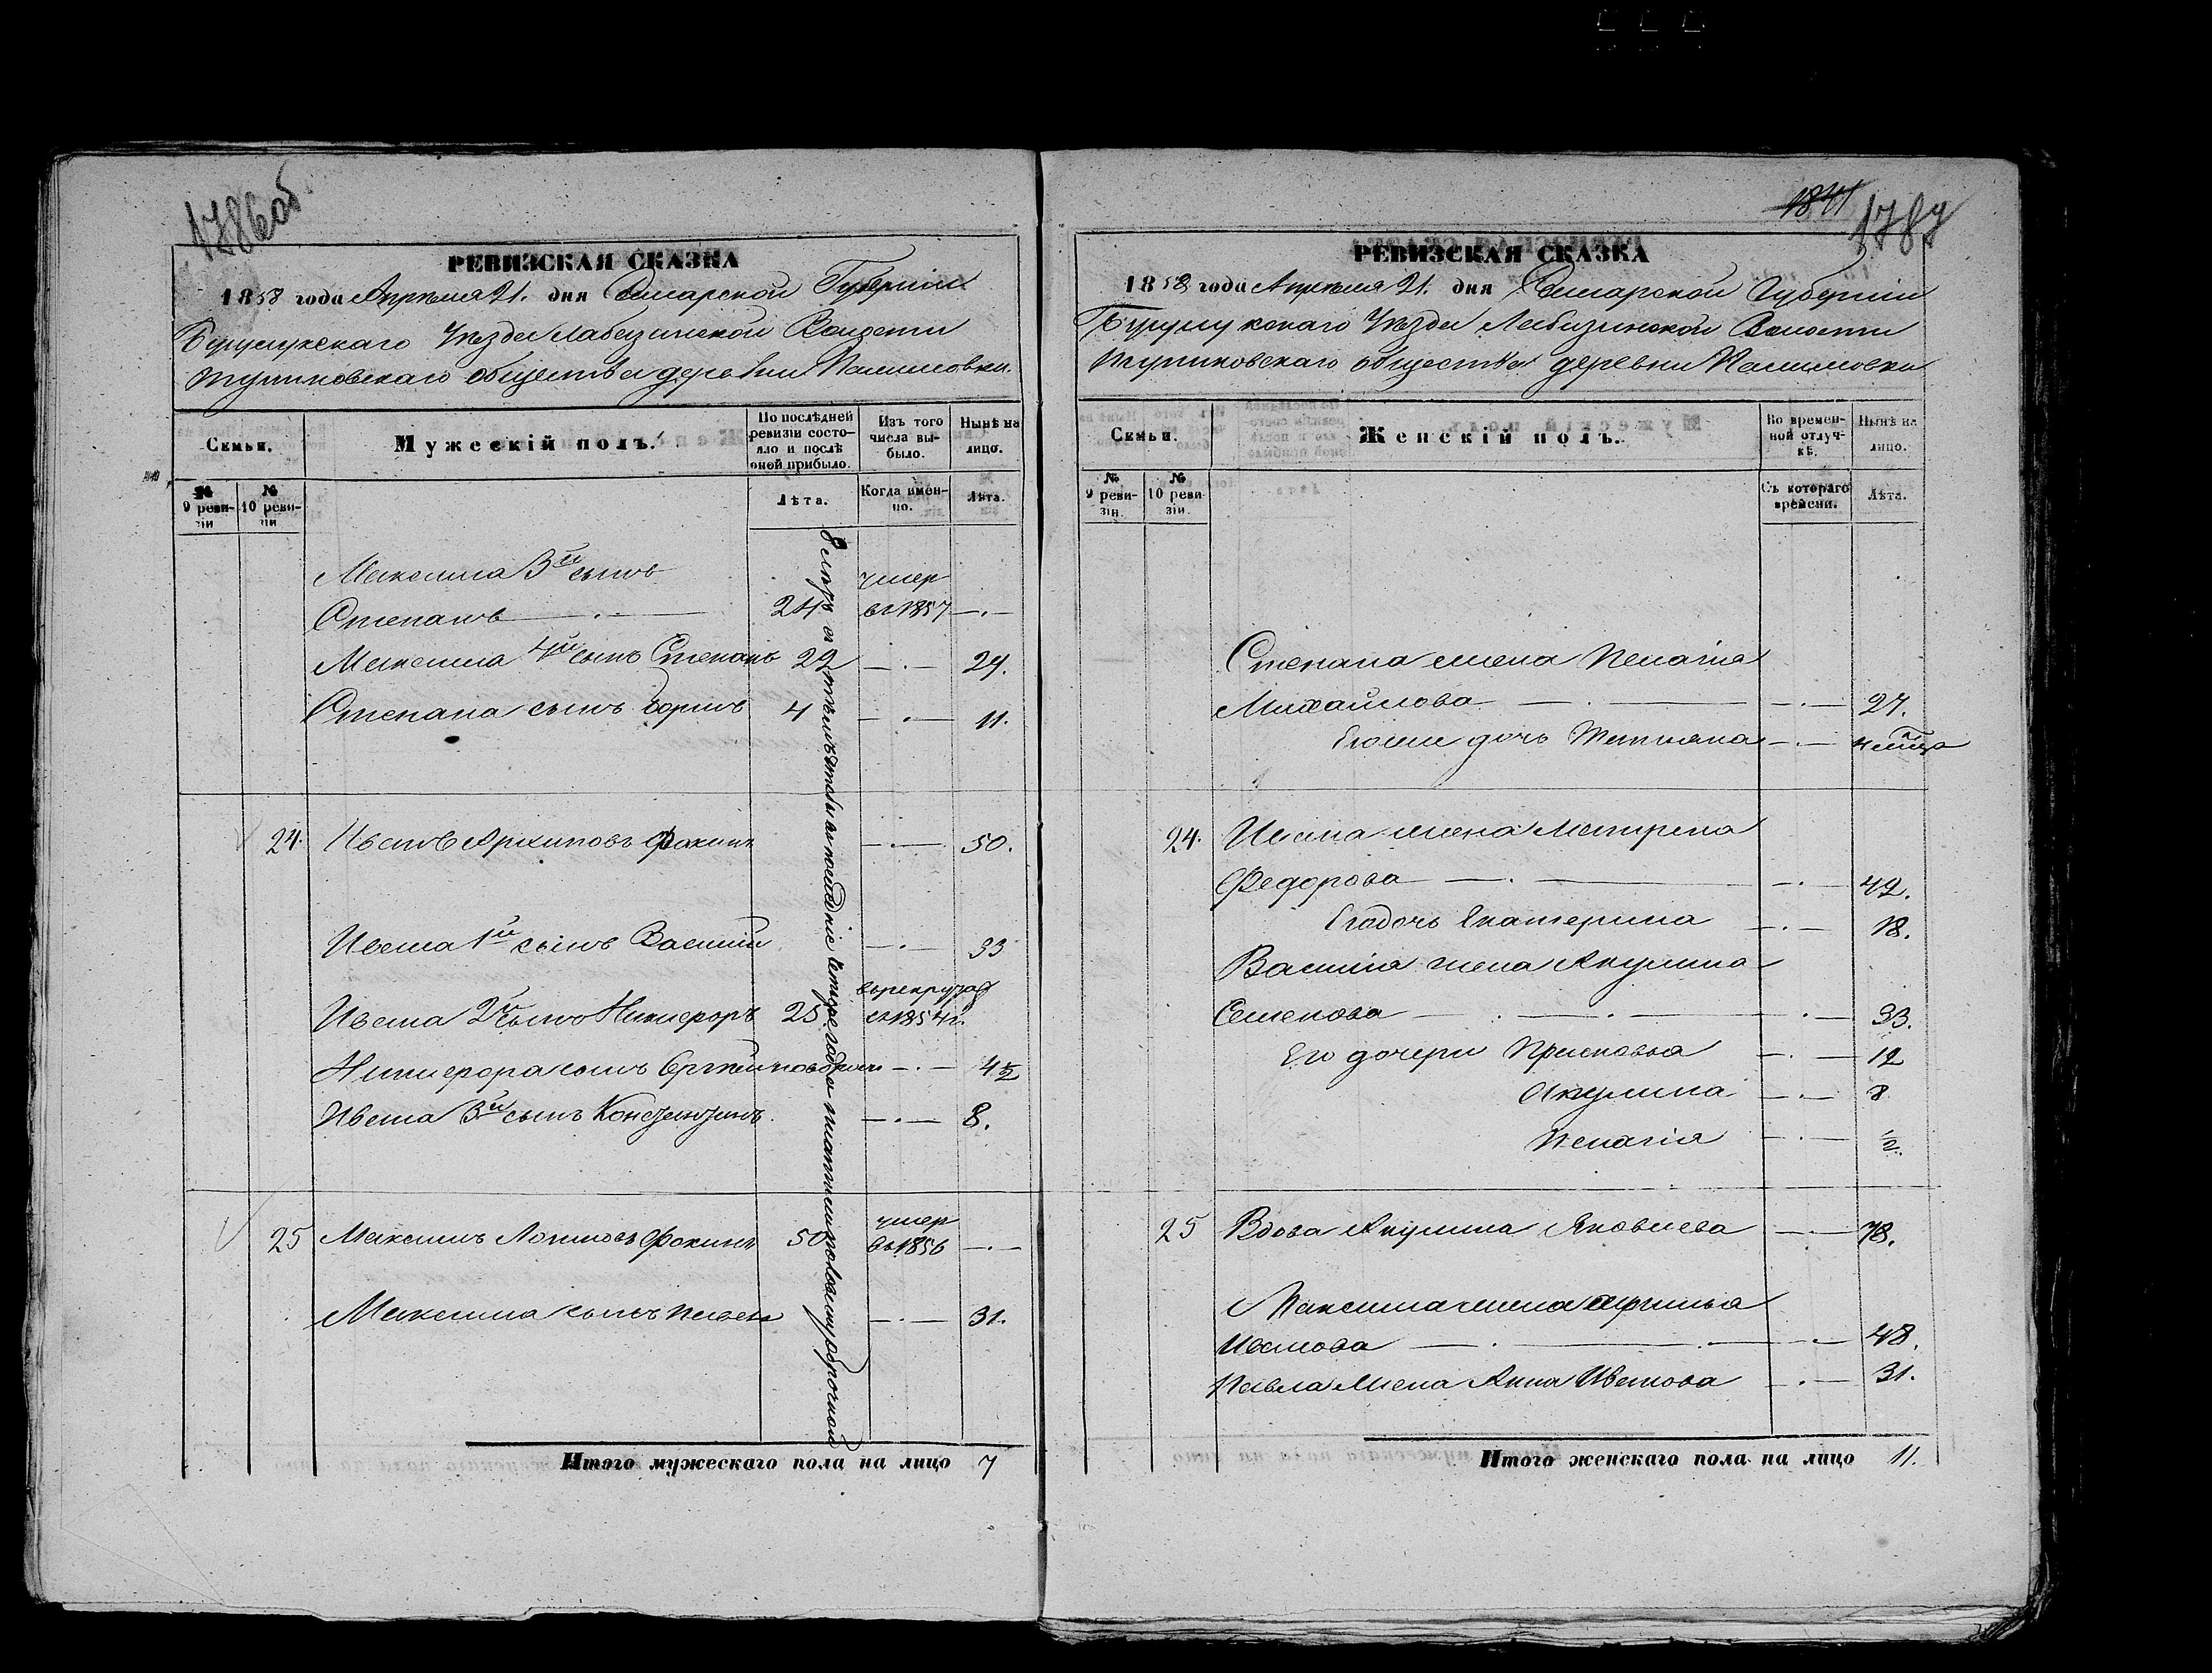 1786об
РЕВИЗСКАЯ СКАЗКА
1858 года Апреля 21. дня Самарской Губернии
Бузулукскаго Уезда Лабазинской Волости
общества деревни
Семьи.
Мужескій полъ.
По послѣдней ревизіи состояло и послѣ оной прибыло.
Изъ того числа выбыло.
Нынѣ на лицо.
№ 9 ревизіи
№ 10 ревизіи
Лѣта.
Когда именно.
Лѣта.
Максима 3й сынъ умер
Степанъ 24 въ 1857 —.—
Максима 4й сынъ Степанъ 22 —.— 29.
Степана сынъ 4 —.— 11.
24. Иванъ Архиповъ Фокинъ —.— 50.
Ивана 1й сынъ Василий —.— 33
въ рекруты
Ивана 2й сынъ Никифоръ 25 въ 1854 г.
Никифора сынъ —.— 4 1/2
Ивана 3й сынъ Константинъ. —.— 8.
25 Максимъ Логиновъ Фокинъ 50 умер въ 1856 —.—
Максима сынъ Павелъ —.— 31.
Итого мужескаго пола на лицо 7
1841
1787
РЕВИЗСКАЯ СКАЗКА
1858 года Апреля 21. дня Самарской Губернии
Бузулукскаго Уезда Лабазинской Волости
общества деревни
Семьи.
Женскій полъ.
Во временной отлучкѣ.
Нынѣ на лицо.
№ 9 ревизіи.
№ 10 ревизіи.
Съ котораго времени.
Лѣта.
Степана жена Пелагия
Михайлова —.— —.— 27.
дочь Татьяна —.— 4
24. Ивана жена Матрена
Федорова —.— —.— 42.
Его дочь Екатерина —.— 18.
Василия жена Акулина
Семенова —.— —.— 33.
Его дочери Прасковья —.— 12
Акулина —.— 8
Пелагия —.— 1/2
25 Вдова Акулина Яковлева —.— 78.
Максима жена
Иванова —.— —.— 48.
Павла жена Анна Иванова —.— 31.
Итого женскаго пола на лицо 11.